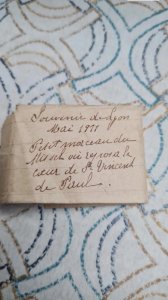 Souvenir de Lyon
Mai 1877
Petit morceau du
où reposa le
cœur de St Vincent
de Paul.